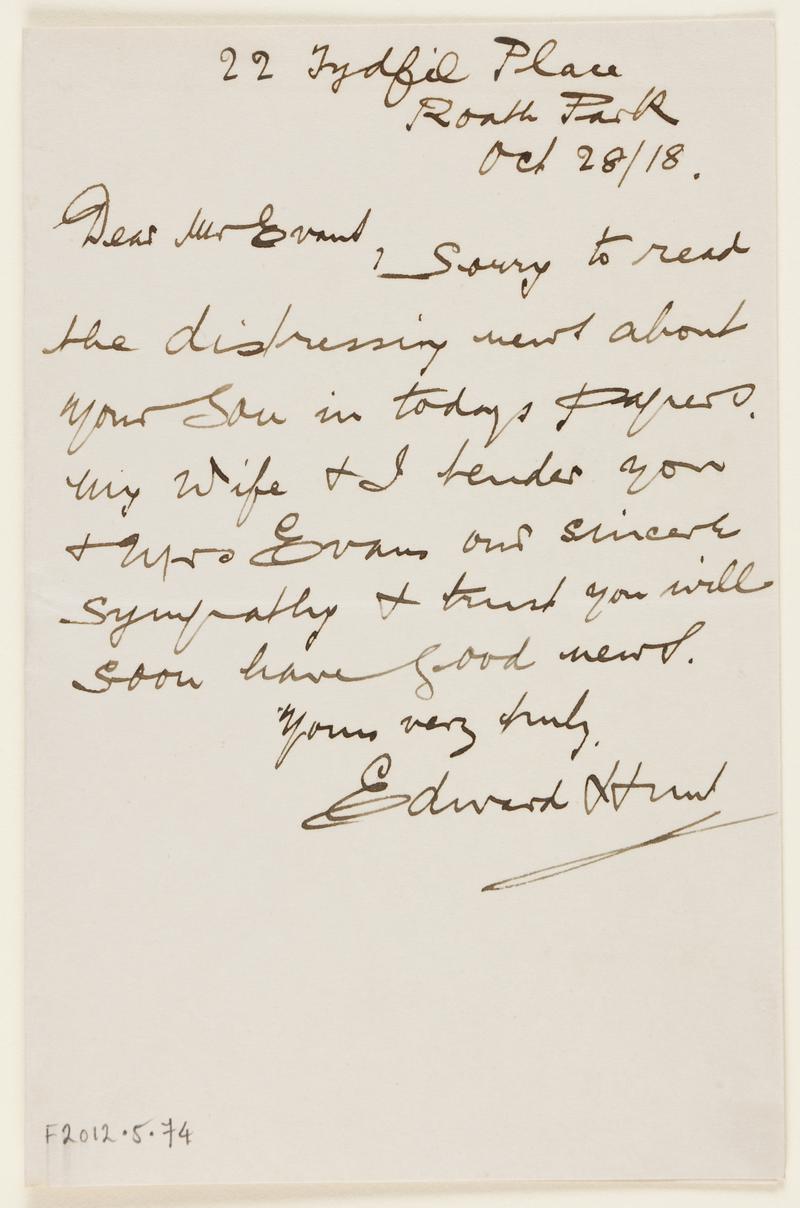 22 Tydfil Place
Roath Park
Oct 28/18.
Dear Mr Evans,
Sorry to read
the distressing news about
your Son in todays papers.
My Wife & I tender you
& Mrs Evans our sincere
sympathy & trust you will
soon have good news.
Yours very truly,
Edward Hunt
F2012.5.74